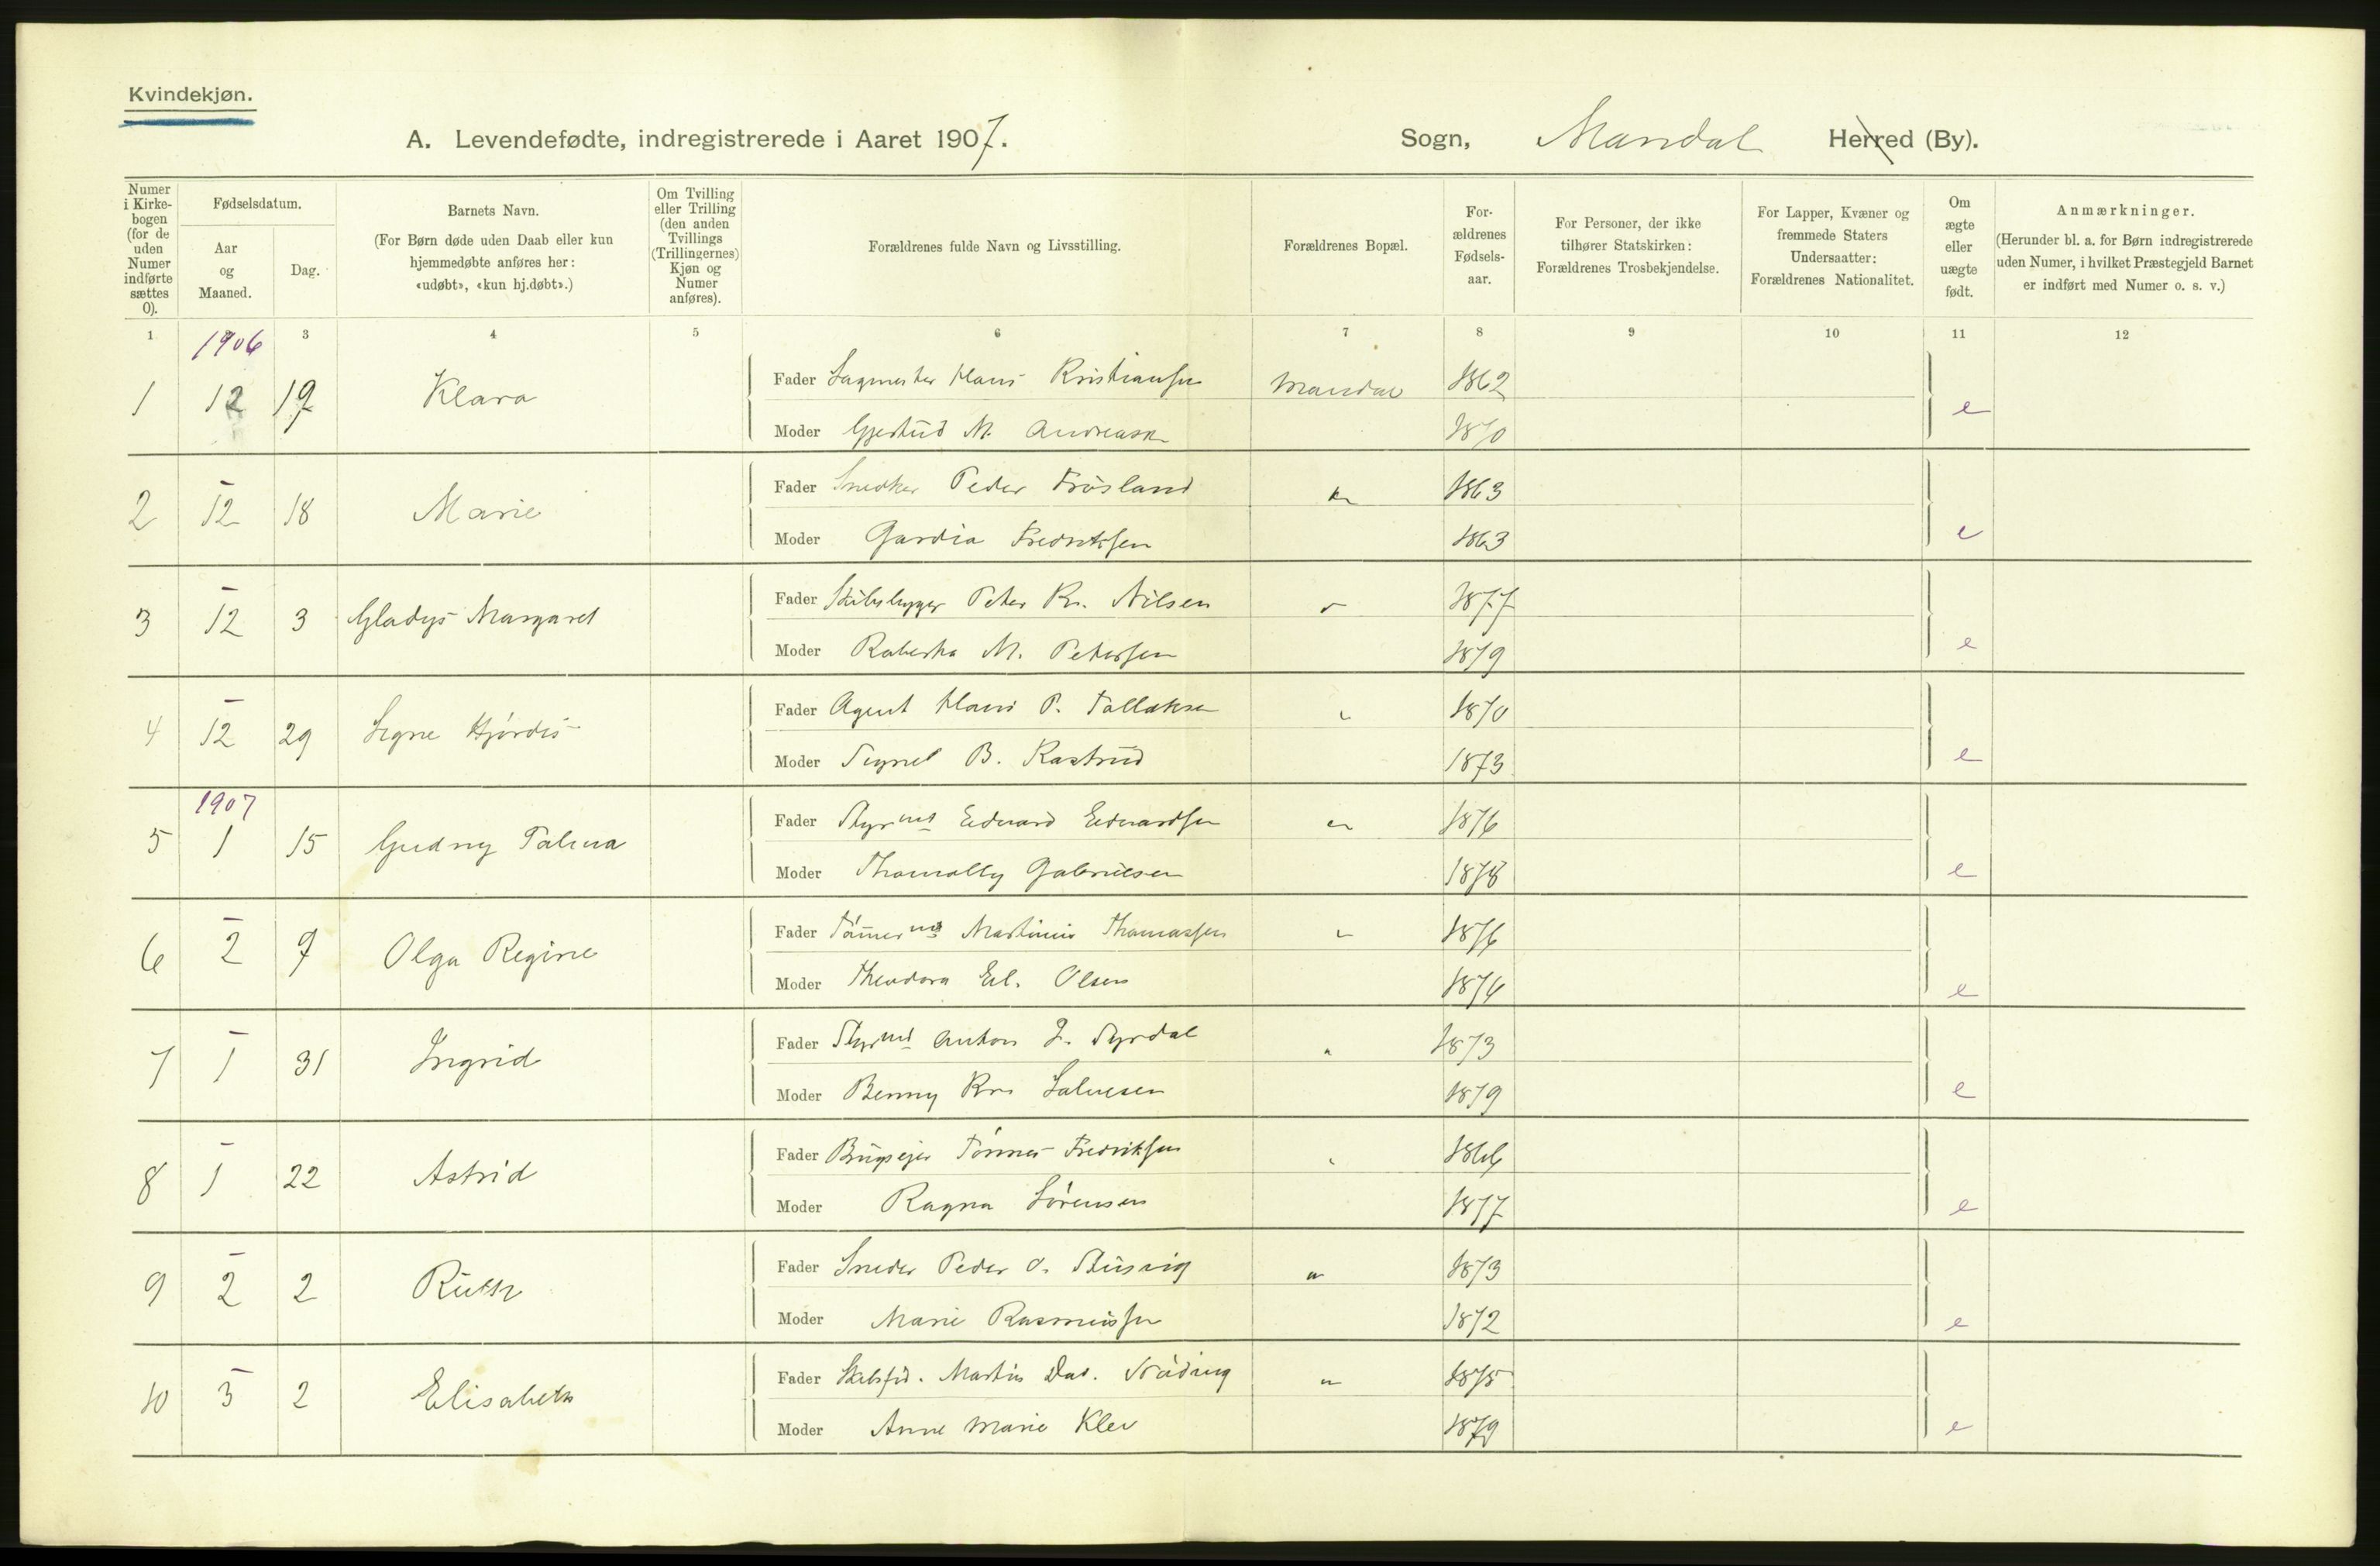 Kvindekjøn.
A. Levendefødte, indregistrerede i Aaret 1907.
Sogn, Mandal Herred (By).
Numer i Kirkebogen (for de uden Numer indførte sættes 0).
Fødselsdatum.
Aar og Maaned.
Dag.
Barnets Navn.
(For Børn døde uden Daab eller kun hjemmedøbte anføres her: «udøbt», «kun hj.døbt».)
Om Tvilling eller Trilling (den anden Tvillings (Trillingernes) Kjøn og Numer anføres).
Forældrenes fulde Navn og Livsstilling.
Forældrenes Bopæl.
Forældrenes Fødselsaar.
For Personer, der ikke tilhører Statskirken: Forældrenes Trosbekjendelse.
For Lapper, Kvæner og fremmede Staters Undersaatter: Forældrenes Nationalitet.
Om ægte eller uægte født.
Anmærkninger.
(Herunder bl. a. for Børn indregistrerede uden Numer, i hvilket Præstegjeld Barnet er indført med Numer o. s. v.)
1 3 4 5 6 7 8 9 10 11 12
1906
1 12 19 Klara Fader Sagmester Hans Kristiansen Mandal 1862
Moder Gjertrud M. Andreasen 1870 e
2 12 18 Marie Fader Snedker Peder 1863
Moder Gardia Fredriksen 1863 e
3 12 3 Gladys Margaret Fader Skibsbygger Peter Kr. Nilsen 1877
Moder Roberta M. Petersen 1879 e
4 12 29 Signe Hjørdis Fader Agent Hans P. Tallaksen 1870
Moder B. 1873 e
1907
5 1 15 Gudny Fader Styrmd Edvard Edvardsen 1876
Moder Gabrielsen 1878 e
6 2 7 Olga Regine Fader Tømermd Martinius Thomassen 1876
Moder Theodora El. Olsen 1876 e
7 1 31 Ingrid Fader Styrmd Anton J. Syrdal 1873
Moder Benny Kr. Salvesen 1879 e
8 1 22 Astrid Fader Tønnes Fredriksen 1866
Moder Ragna Sørensen 1877 e
9 2 2 Ruth Fader Peder O. 1873
Moder Marie Rasmussen 1872 e
10 3 2 Elisabeth Fader Skibsfø. Martin Dav. 1875
Moder Anne Marie Klev 1879 e